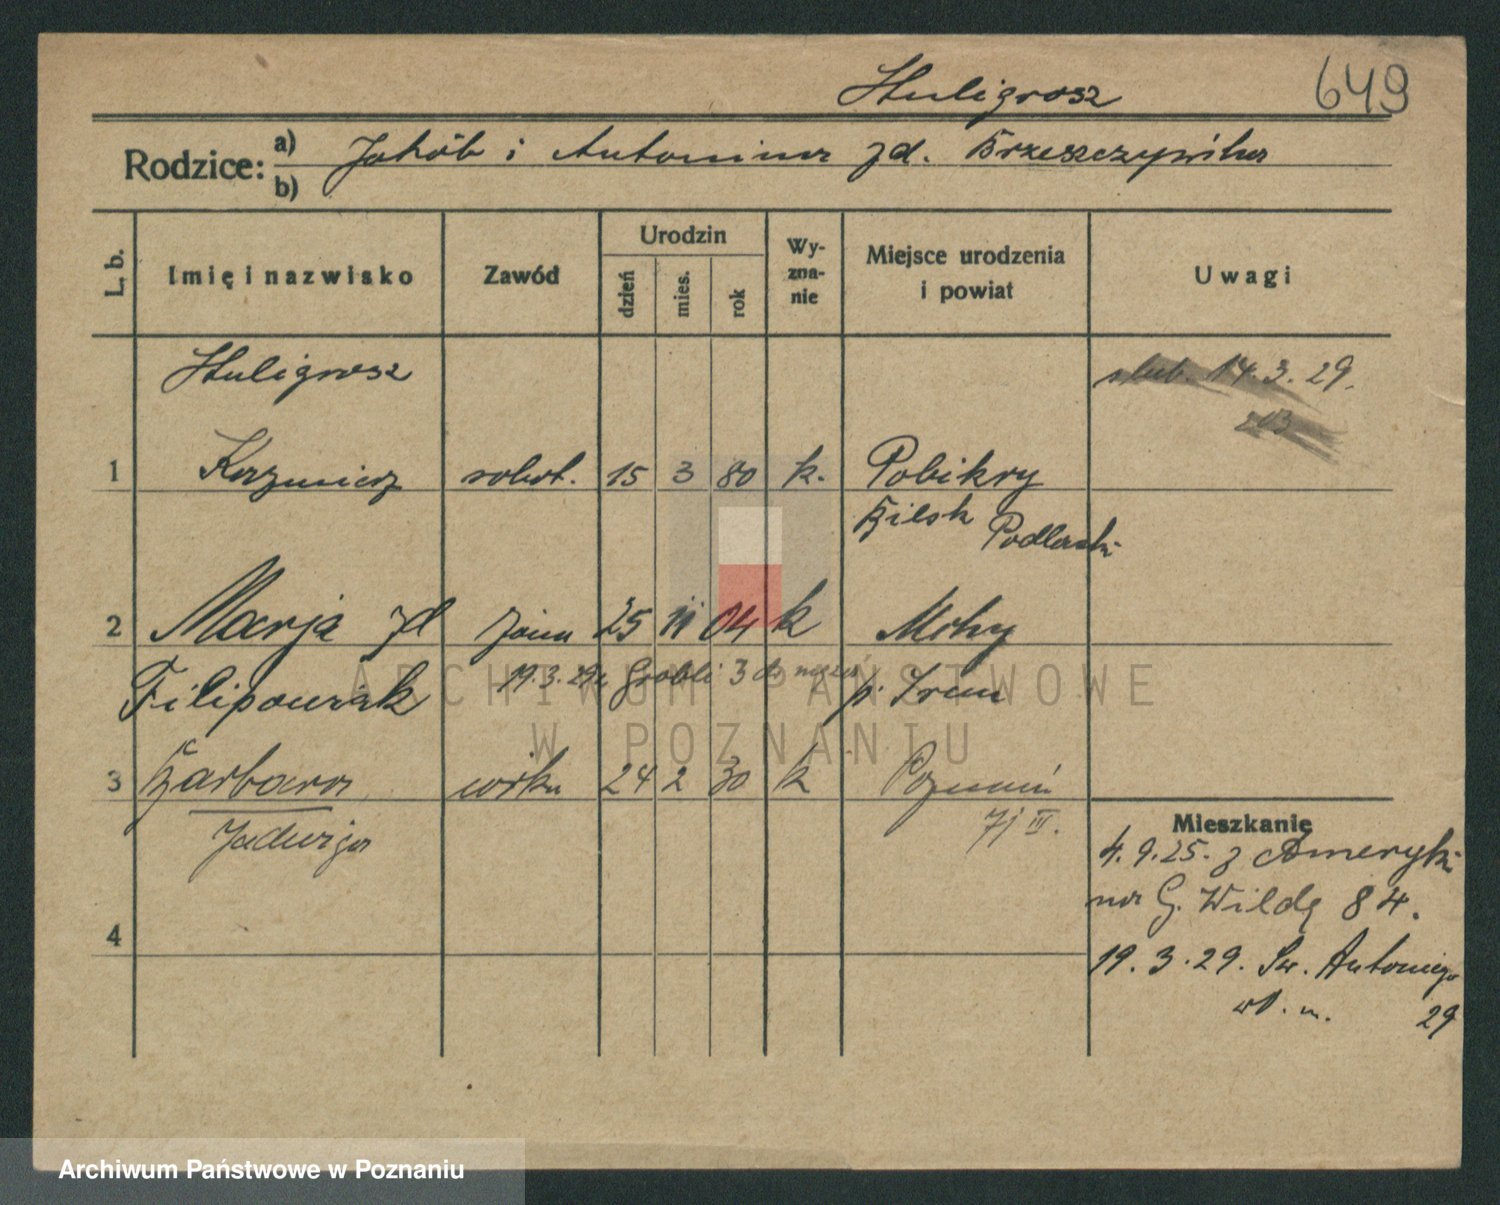 Huligrosz
649
Rodzice: a) Jakób i Antonina zd. Brzeszczywilna
b)
L. b.
Imię i nazwisko
Zawód
Urodzin
dzień
mies.
rok
Wy-
zna-
nie
Miejsce urodzenia
i powiat
Uwagi
Huligrosz
ślub. 14.3.29.
1 Kazmierz robot. 15 3 80 k. Pobikry
Bilsk Podlaski
2 Marja zd żona 25 11 04 k Mchy
Filipowiak
19.3.29 z Grobli 3 do
p. Śrem
3 Barbara córka 24 2 30 k Poznań
Jadwiga
7/III.
4
Mieszkanie
4.9.25. z Ameryki
na G. Wildę 84.
19.3.29. Św. Antoniego
wł. m. 29
ARCHIWUM PAŃSTWOWE
W POZNANIU
Archiwum Państwowe w Poznaniu